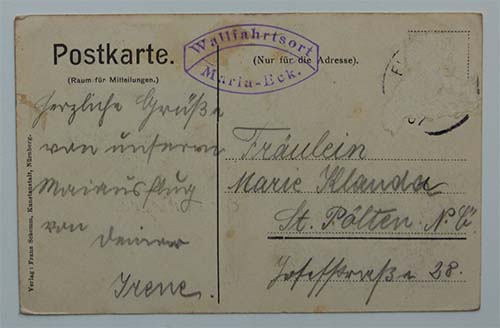 Postkarte.
(Raum für Mitteilungen.)
Wallfahrtsort
Maria-Eck.
(Nur für die Adresse).
Herzliche Grüße
von unserem
Maiausflug
von
Deiner
Irene.
Fräulein
Marie Klanda
St. Pölten N.Ö
Josefstraße 28.
Verlag: Franz Schemm, Kunstanstalt, Nürnberg.